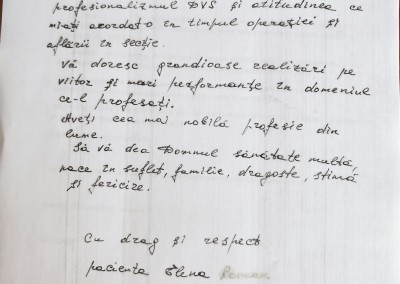 profesionalizmul DVS și atitudinea ce
mi-ați acordat-o în timpul operației și
aflării în secție.
Vă doresc grandioase realizări pe
viitor și mari performanțe în domeniul
ce-l profesați.
Aveți cea mai nobilă profesie din
lume.
Să vă dea Domnul sănătate multă,
pace în suflet, familie, dragoste, stimă
și fericire.
Cu drag și respect
pacienta Elena